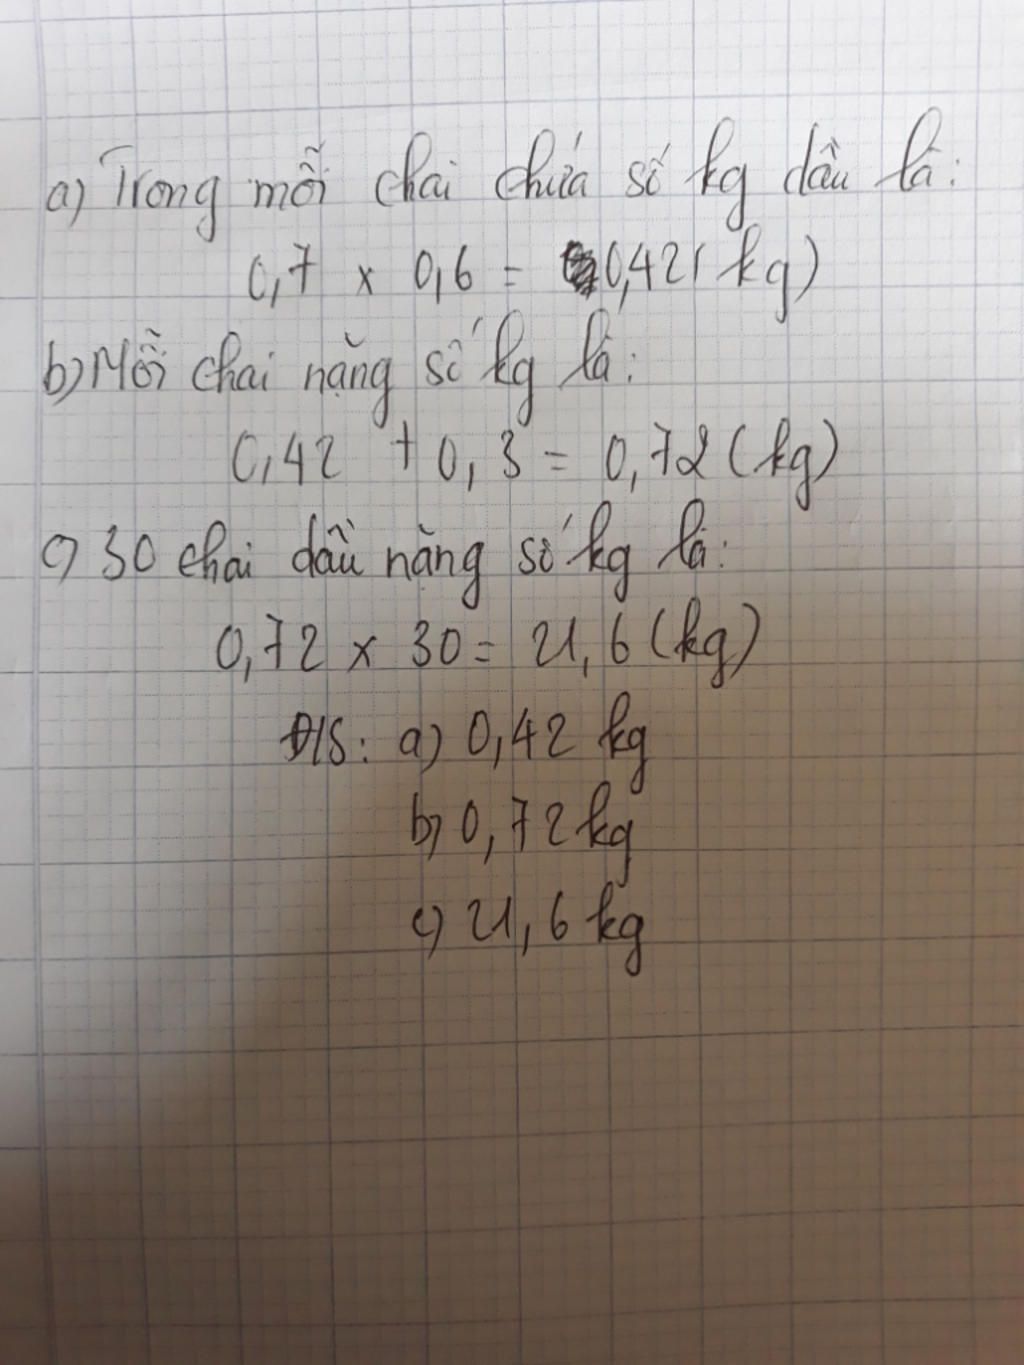 a) Trong mỗi chai chứa số kg dầu là:
0,7 x 0,6 = 0,42 ( kg)
b) Mỗi chai nặng số kg là:
0,42 + 0,3 = 0,72 (kg)
c) 30 chai dầu nặng số kg là:
0,72 x 30 = 21,6 (kg)
Đ/S: a) 0,42 kg
b) 0,72 kg
c) 21,6 kg